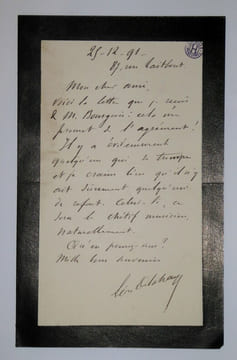 25-12-91-
87, rue Taitbout
Mon cher ami,
Voici la lettre que je reçois
de M. Bourgeois: cela n'a
l'agrément!
Il y a évidemment
quelqu'un qui se trompe
et je crains bien qu'il n'y
ait sûrement quelqu'un
de refait. Celui-là, ce
sera le chétif musicien,
naturellement.
Qu'en pensez-vous?
Mille bons souvenirs
Léo Delibes